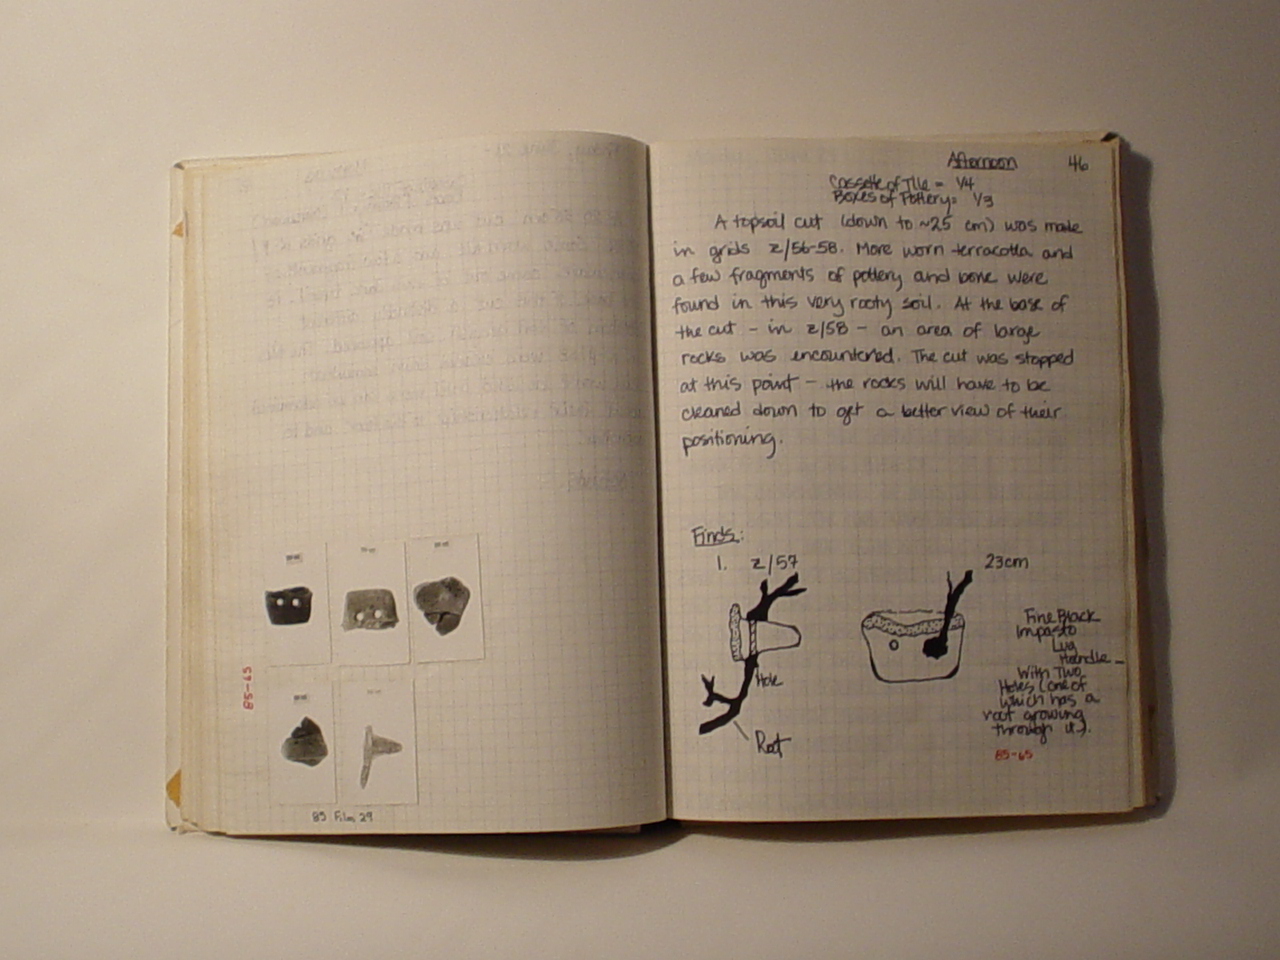 85-65
85 Film 29
Afternoon 46
Cassette of Tile = 1/4
Boxes of Pottery = 1/3
A topsoil cut (down to ~25 cm) was made
in grids z/56-58. More worn terracotta and
a few fragments of pottery and bone were
found in this very rooty soil. At the base of
the cut - in z/58 - an area of large
rocks was encountered. The cut was stopped
at this point - the rocks will have to be
cleaned down to get a better view of their
positioning.
Finds:
1. z/57 23cm
Hole
Root
Fine Black
Impasto
Lug
Handle -
With Two
Holes (one of
which has a
root growing
through it).
85-65